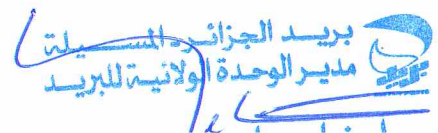 بريد الجزائر المسيلة
مدير الوحدة الولائية للبريد